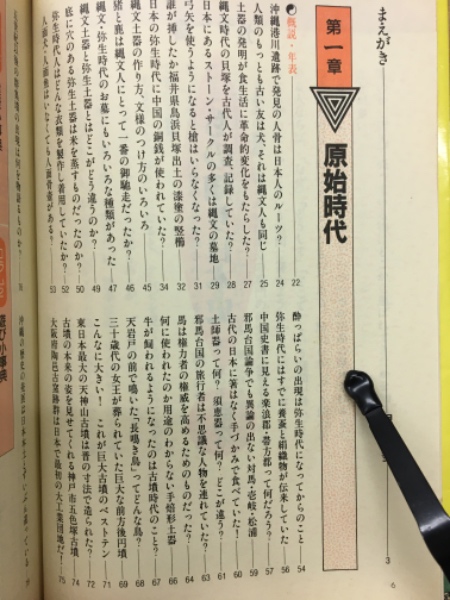 まえがき 3
第一章 原始時代
概説・年表 22
沖縄港川遺跡で発見の人骨は日本人のルーツ? 24
人類のもっとも古い友は犬、それは縄文人も同じ 25
土器の発明が食生活に革命的変化をもたらした? 27
縄文時代の貝塚を古代人が調査、記録していた? 28
日本にあるストーン・サークルの多くは縄文の墓地 29
弓矢を使うようになると槍はいらなくなった? 31
誰が挿したか福井県鳥浜貝塚出土の漆塗の竪櫛 32
日本の弥生時代に中国の銅銭が使われていた? 34
縄文土器の作り方、文様のつけ方のいろいろ 45
猪と鹿は縄文人にとって一番の御馳走だったか? 46
縄文・弥生時代のお墓にもいろいろな種類があった 47
縄文土器と弥生土器とはどこがどう違うのか? 49
底に穴のある弥生土器は米を蒸すものだったのか? 50
弥生時代人はどんな衣類を製作し着用していたか? 52
人面犬・人面魚はいなくても人面骨壺がある? 53
酔っぱらいの出現は弥生時代になってからのこと 54
弥生時代にはすでに養蚕と絹織物が伝来していた 56
中国史書に見える楽浪郡・帯方郡って何だろう? 57
邪馬台国論争でも異論の出ない対馬・壱岐・松浦 59
古代の日本に箸はなく手づかみで食べていた! 60
土師器って何? 須恵器って何? どこが違う? 61
邪馬台国の旅行者は不思議な人物を連れていた? 63
馬は権力者の権威を高めるためのものだった? 64
何に使われたのか用途のわからない手焙形土器 66
牛が飼われるようになったのは古墳時代のこと? 67
天岩戸の前で鳴いた「長鳴き鳥」ってどんな鳥? 68
三十歳代の女王が葬られていた巨大な前方後円墳 69
こんなに大きい! これが巨大古墳のベストテン 71
東日本最大の天神山古墳は昔の寸法で造られた? 72
古墳の本来の姿を見せてくれる神戸市五色塚古墳 74
大阪府陶邑古窯跡群は日本で最初の大工業団地だ! 75
6